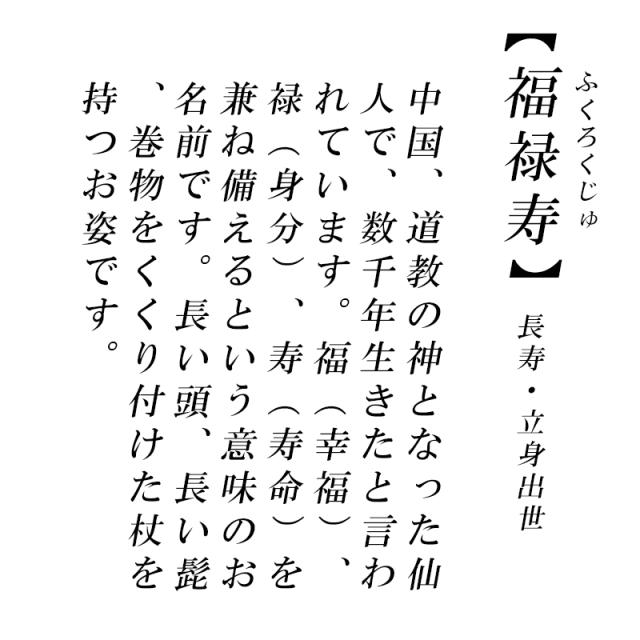 ふくろくじゅ
【福禄寿】 長寿・立身出世
中国、道教の神となった仙
人で、数千年生きたと言わ
れています。福（幸福）、
禄（身分）、寿（寿命）を
兼ね備えるという意味のお
名前です。長い頭、長い髭
、巻物をくくり付けた杖を
持つお姿です。